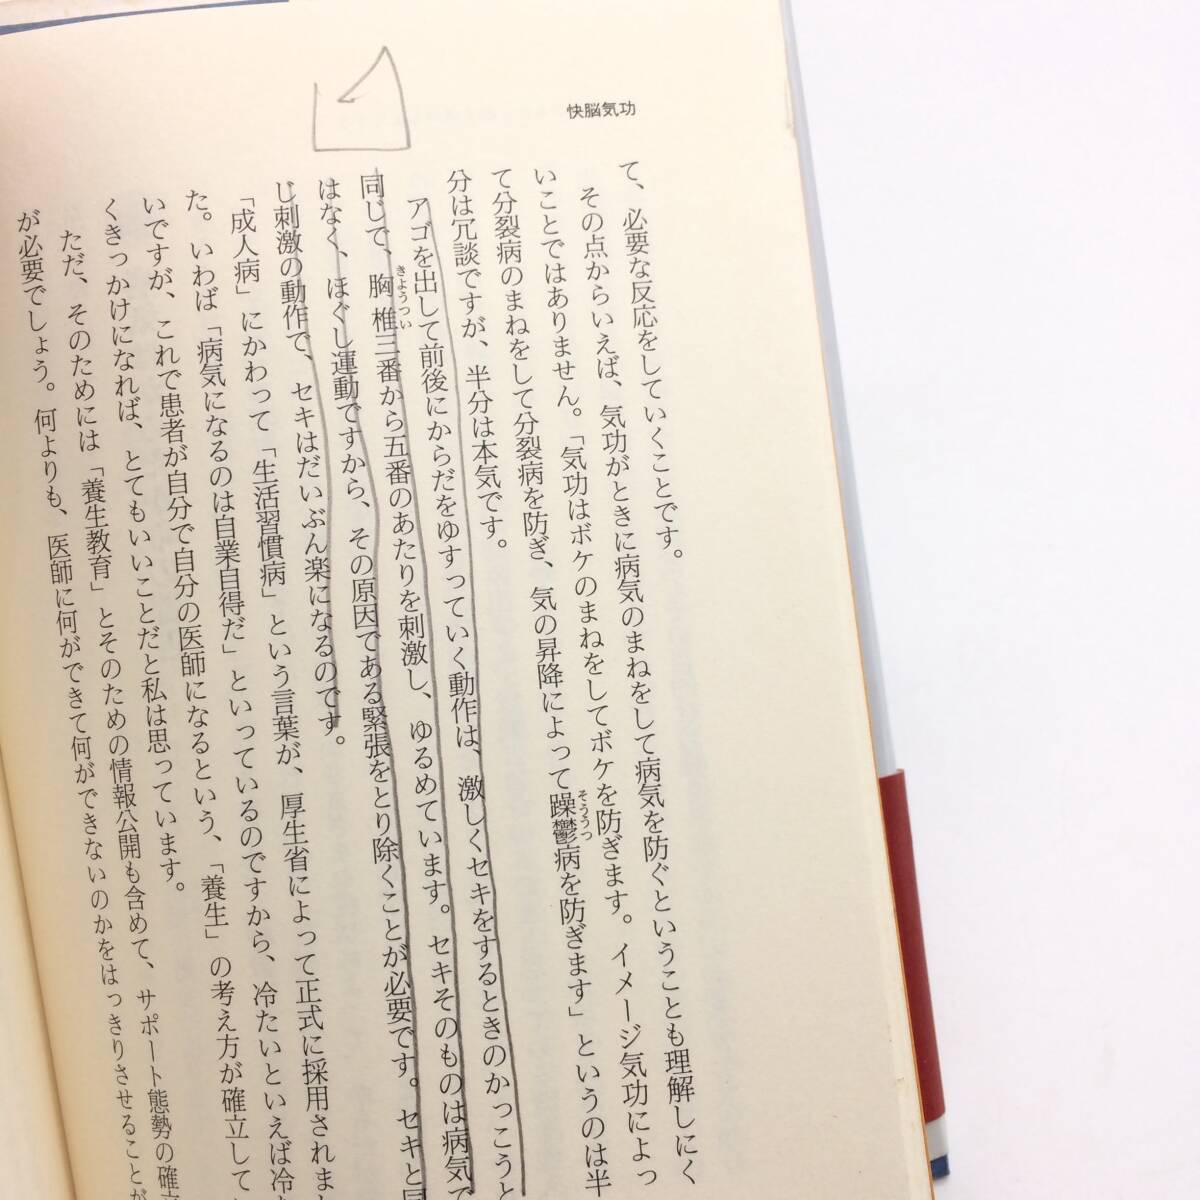 快脳気功
て、必要な反応をしていくことです。
その点からいえば、気功がときに病気のまねをして病気を防ぐということも理解しにく
いことではありません。「気功はボケのまねをしてボケを防ぎます。イメージ気功によっ
て分裂病のまねをして分裂病を防ぎ、気の昇降によって躁鬱病を防ぎます」というのは半
そううつ
分は冗談ですが、半分は本気です。
アゴを出して前後にからだをゆすっていく動作は、激しくセキをするときのかっこうと
同じで、胸椎三番から五番のあたりを刺激し、ゆるめています。セキそのものは病気で
きょうつい
はなく、ほぐし運動ですから、その原因である緊張をとり除くことが必要です。セキと同
じ刺激の動作で、セキはだいぶん楽になるのです。
「成人病」にかわって「生活習慣病」という言葉が、厚生省によって正式に採用されまし
た。いわば「病気になるのは自業自得だ」といっているのですから、冷たいといえば冷た
いですが、これで患者が自分で自分の医師になるという、「養生」の考え方が確立して
くきっかけになれば、とてもいいことだと私は思っています。
ただ、そのためには「養生教育」とそのための情報公開も含めて、サポート態勢の確立
が必要でしょう。何よりも、医師に何ができて何ができないのかをはっきりさせることが